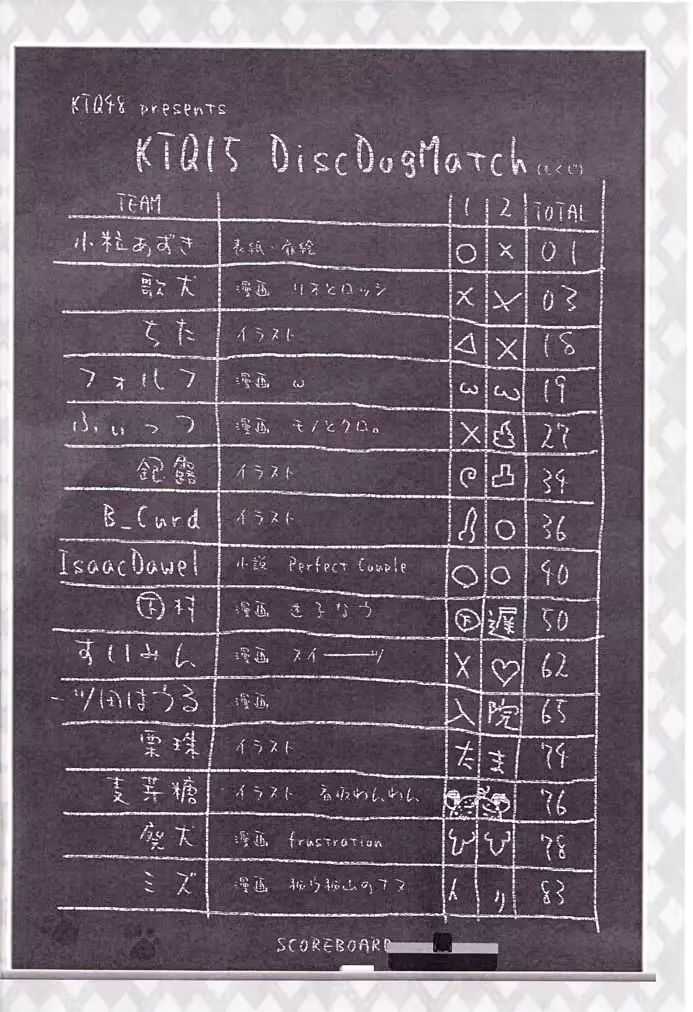 KTQ48 presents
KTQ15 DiscDogMatch (もくじ)
TEAM 1 2 TOTAL
小粒あずき 表紙・扉絵 ○ × 01
歌犬 漫画 リオとロッジ × × 03
ちた イラスト △ × 18
フォルフ 漫画 ω ω ω 19
ふぃっつ 漫画 モノとクロ。 × 27
銀露 イラスト 34
B_Curd イラスト ○ 36
IsaacDawel 小説 Perfect Couple ○ ○ 40
㊦村 漫画 きろなう ㊦ 遅 50
すいみん 漫画 スイーーーツ X ♡ 62
一ツ田はうる 漫画 入 院 65
栗珠 イラスト たま 74
麦芽糖 イラスト 看板わんわん 76
廃犬 漫画 frustration 78
ミズ 漫画 83
SCOREBOARD